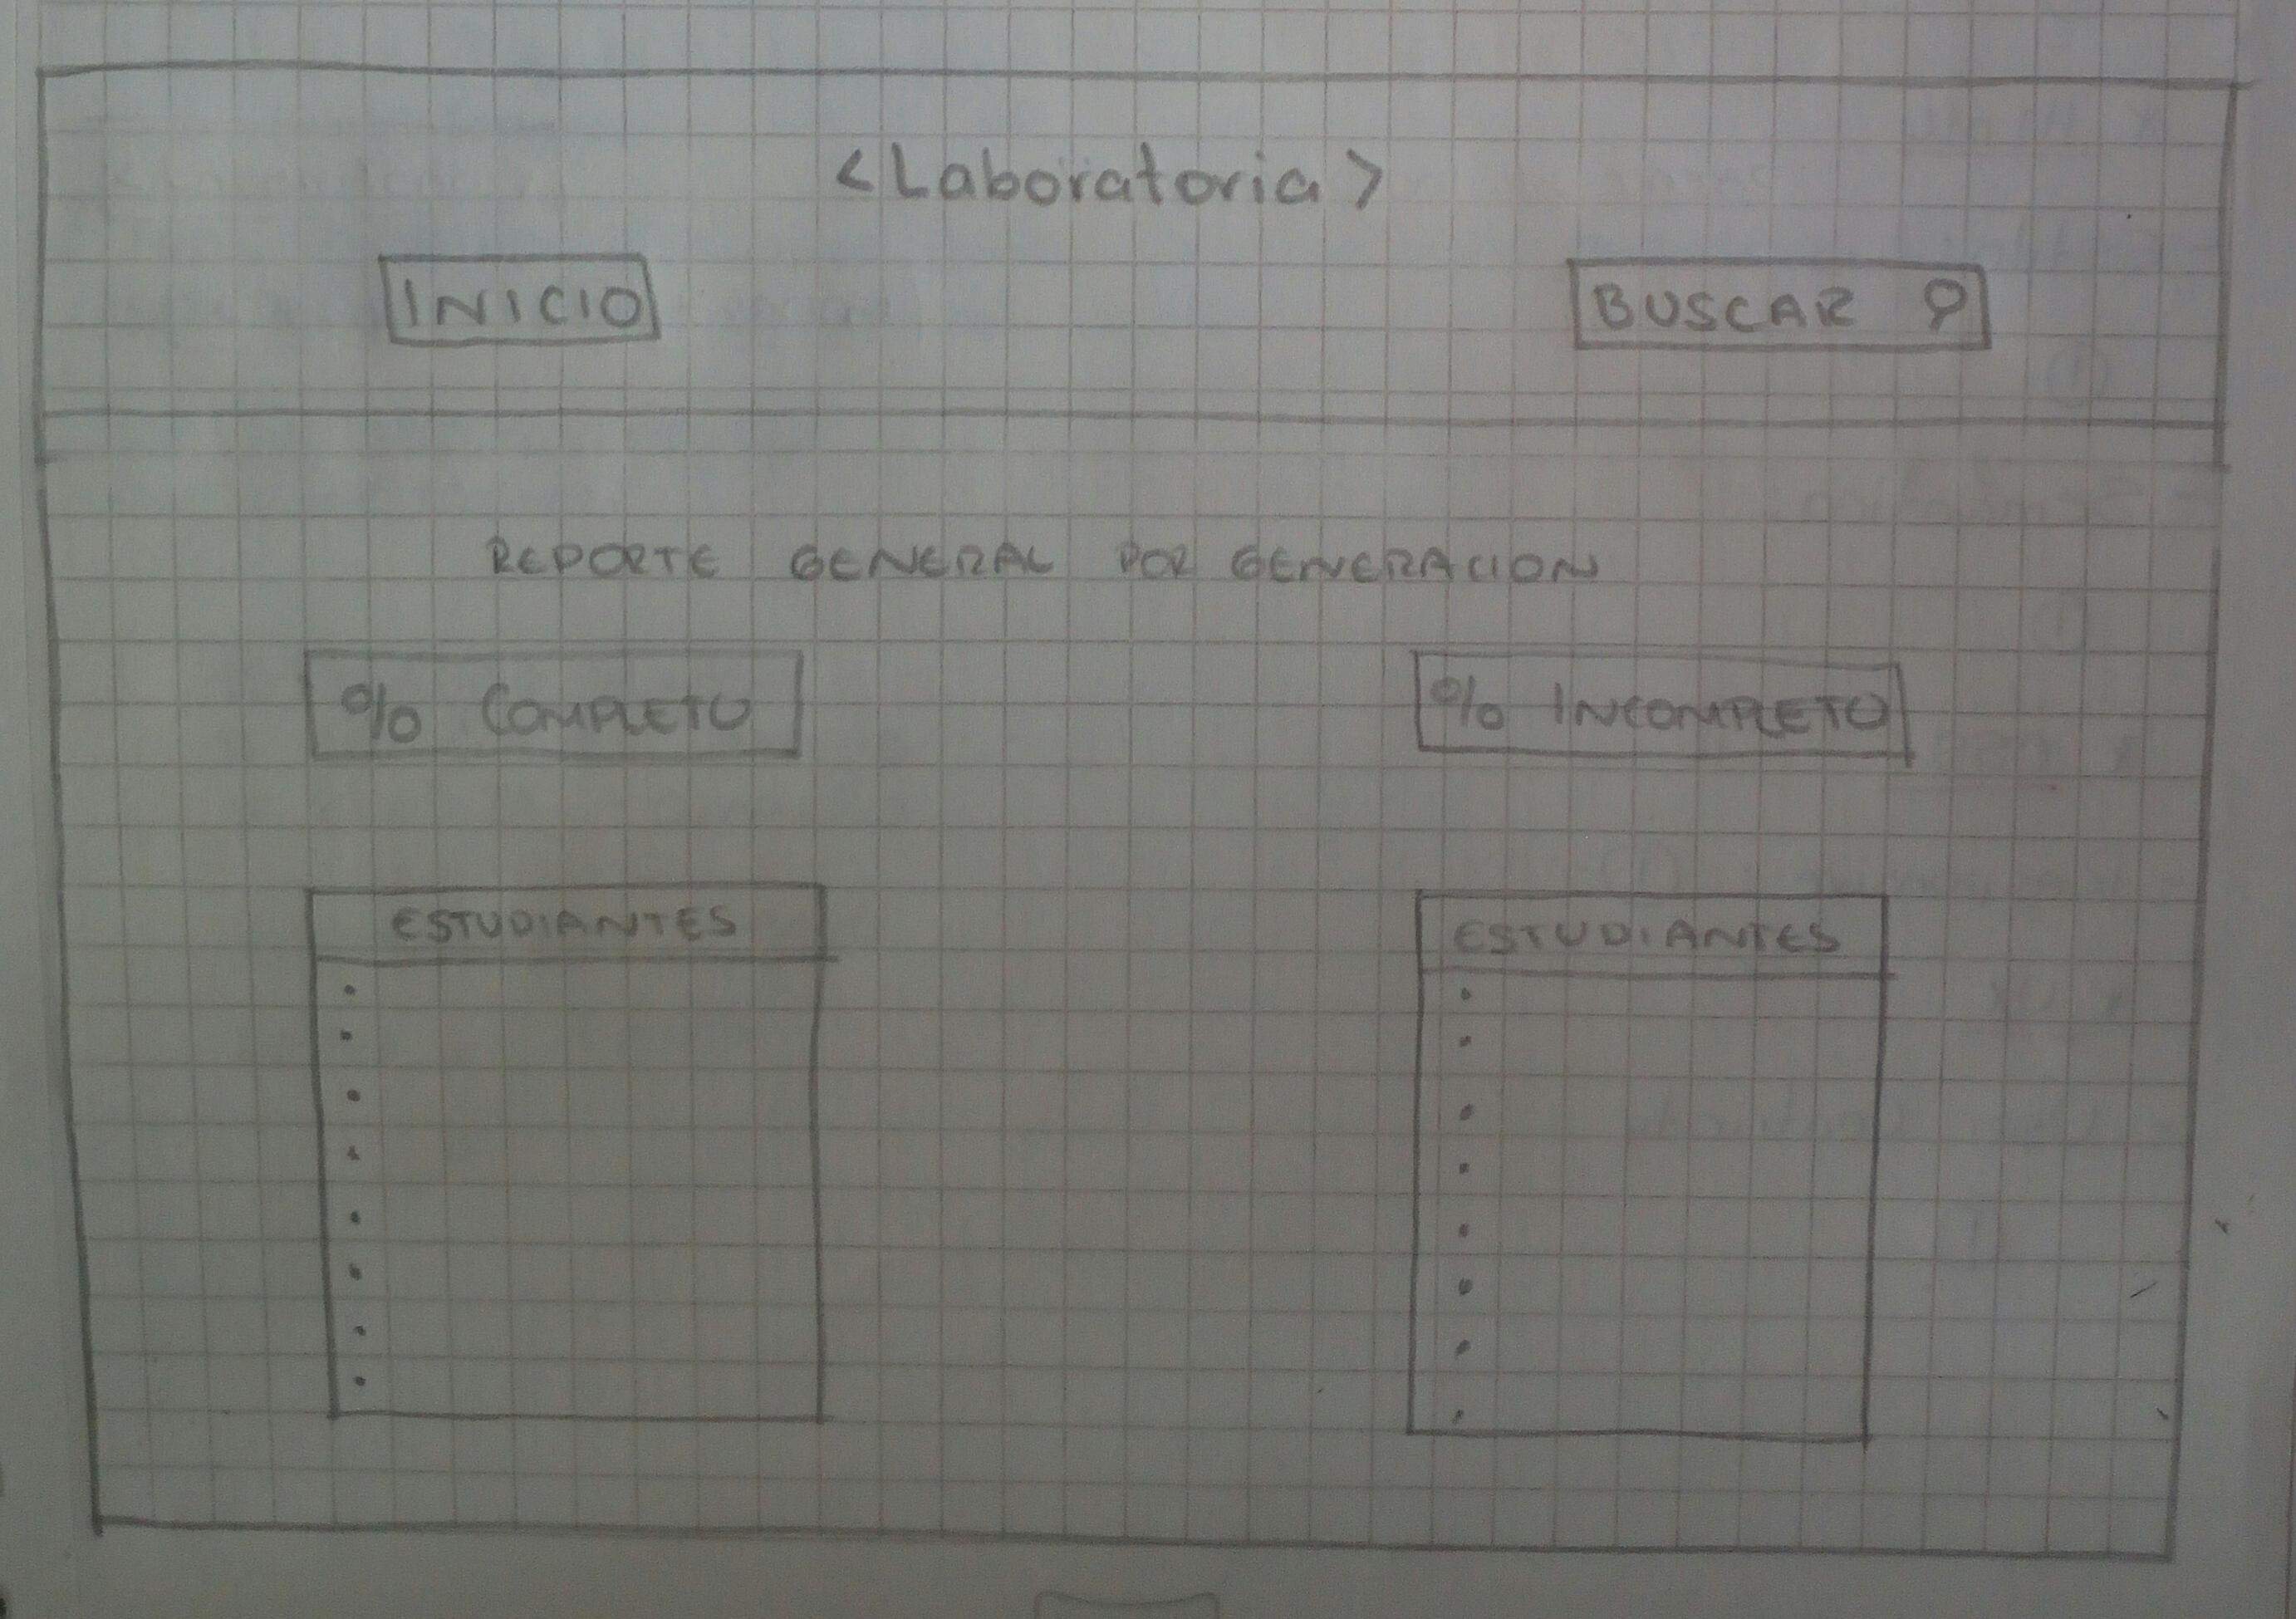 <Laboratoria>
INICIO
BUSCAR
REPORTE GENERAL POR GENERACION
% COMPLETO
% INCOMPLETO
ESTUDIANTES
ESTUDIANTES